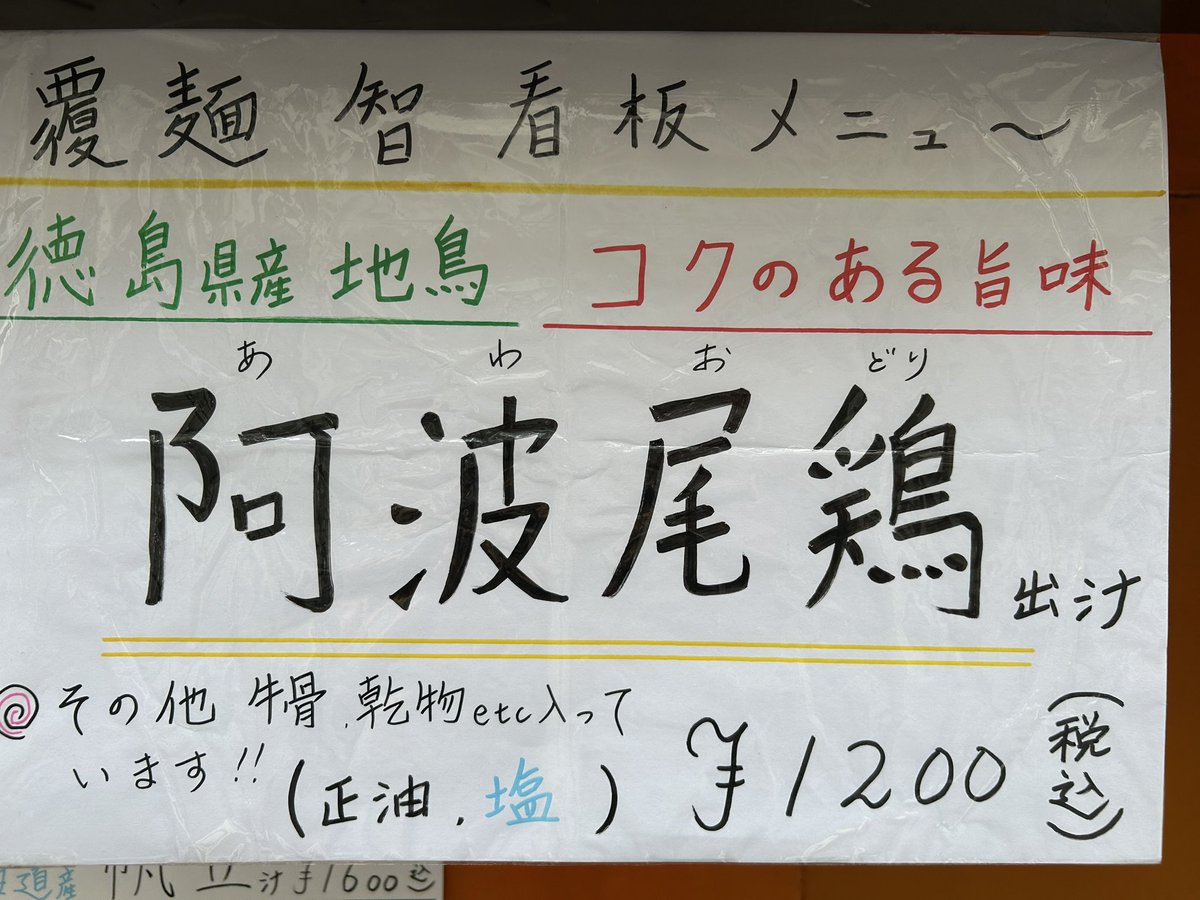 覆麺智看板メニュ〜
徳島県産地鳥 コクのある旨味
あわおどり
阿波尾鶏出汁
その他 牛骨、乾物etc入って
います!!
(正油、塩) ¥1200(税込)
道産 帆立汁¥1600込